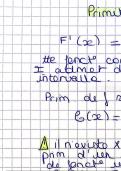 Primit
F'(x) =
tte fonct° con
I admet d
intervalle.
Prim de f s
G(x) =
⚠ il n'existe
prim d'un
de fonct° u